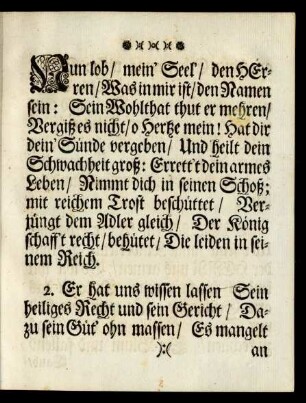 Nun lob/ mein' Seel'/ den HEr-
ren/ Was in mir ist/ den Namen
sein: Sein Wohlthat thut er mehren/
Vergiß es nicht/ o Hertze mein! Hat dir
dein' Sünde vergeben/ Und heilt dein
Schwachheit groß: Errett't dein armes
Leben/ Nimmt dich in seinen Schoß;
mit reichem Trost beschüttet/ Ver-
jüngt dem Adler gleich/ Der König
schafft recht/ behütet/ Die leiden in sei-
nem Reich.
2. Er hat uns wissen lassen Sein
heiliges Recht und sein Gericht/ Da-
zu sein Güt' ohn massen/ Es mangelt
):( an